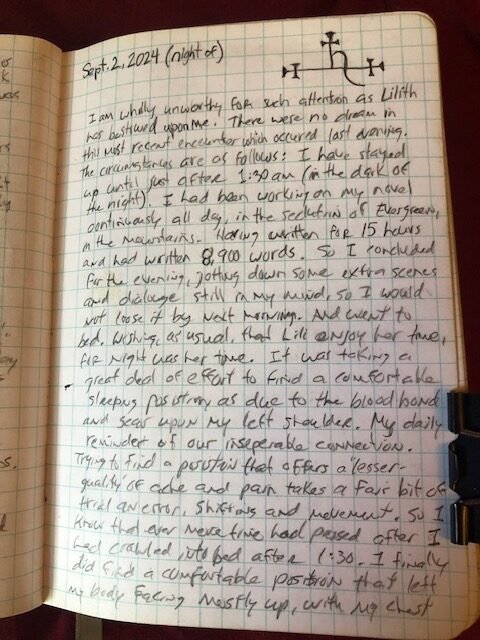 Sept. 2, 2024 (night of)
I am wholly unworthy for such attention as Lilith
has bestowed upon me. There were no dream in
this most recent encounter which occured last evening.
The circumstances are as follows: I have stayed
up until just after 1:30 am (in the dark of
the night). I had been working on my novel
continuously all day, in the seclution of Evergreen,
in the mountains. Having written for 15 hours
and had written 8,900 words. So I concluded
for the evening, jotting down some extra scenes
and dialouge still in my mind, so I would
not loose it by next morning. And went to
bed. Wishing, as usual, that Lili enjoy her time,
for night was her time. It was taking a
great deal of effort to find a comfortable
sleeping posistion, as due to the blood bond
and scar upon my left shoulder. My daily
reminder of our inseperable connection.
Trying to find a position that offers a lesser-
quality of ache and pain takes a fair bit of
trial an error, shifting and movement. So I
know that ever more time had passed after I
had crawled into bed after 1:30. I finally
did find a comfortable position that left
my body facing mostly up, with my chest
as